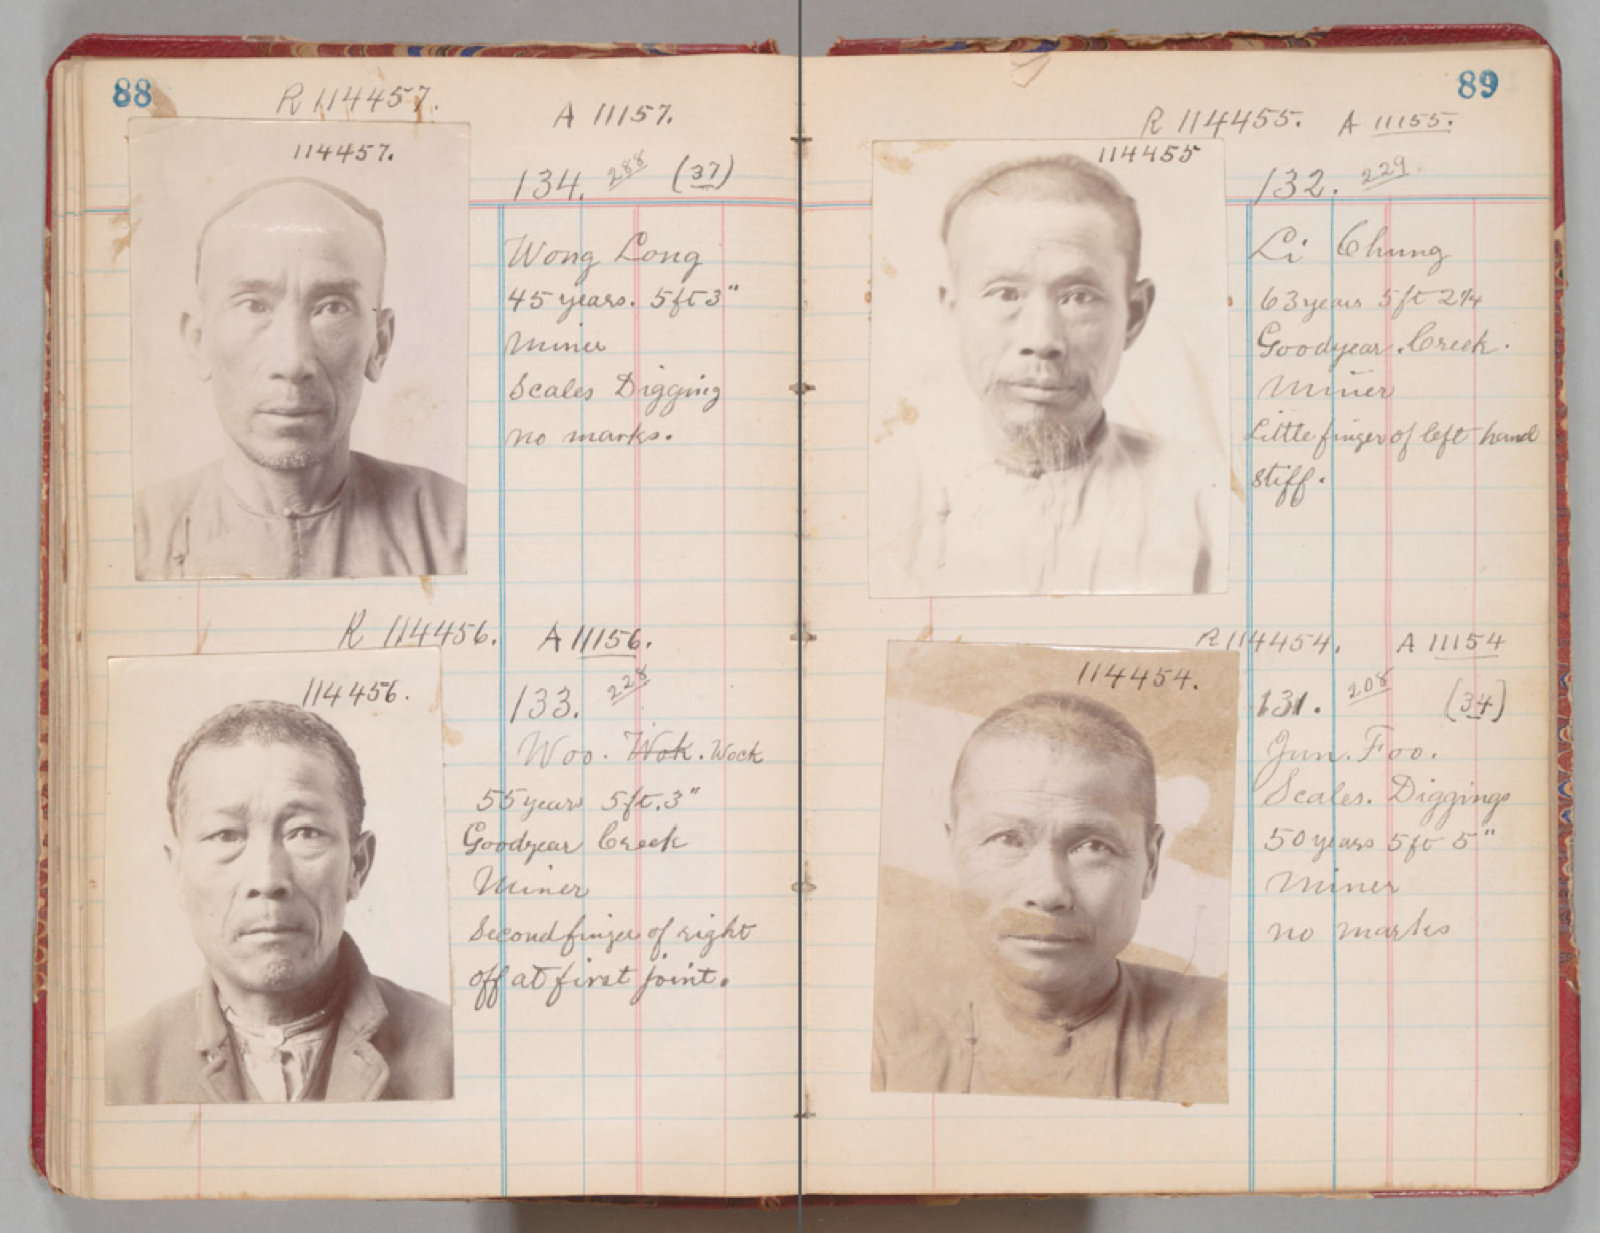 88
R 114457.
A 11157.
114457.
134. 288 (37)
Wong Long
45 years. 5ft 3"
Miner
Scales Digging
no marks.
R 114456. A 11156.
114456.
133. 228
Woo. Wok. Wock
55 years 5ft. 3"
Goodyear Creek
Miner
Second finger of right
off at first joint.
89
R 114455. A 11155.
114455
132. 229.
Li Chung
63 years 5ft 2 1/4
Goodyear. Creek.
Miner
Little finger of left hand
stiff.
R 114454. A 11154
114454.
131. 208 (34)
Jun. Foo.
Scales. Diggings
50 years 5ft 5"
Miner
no marks